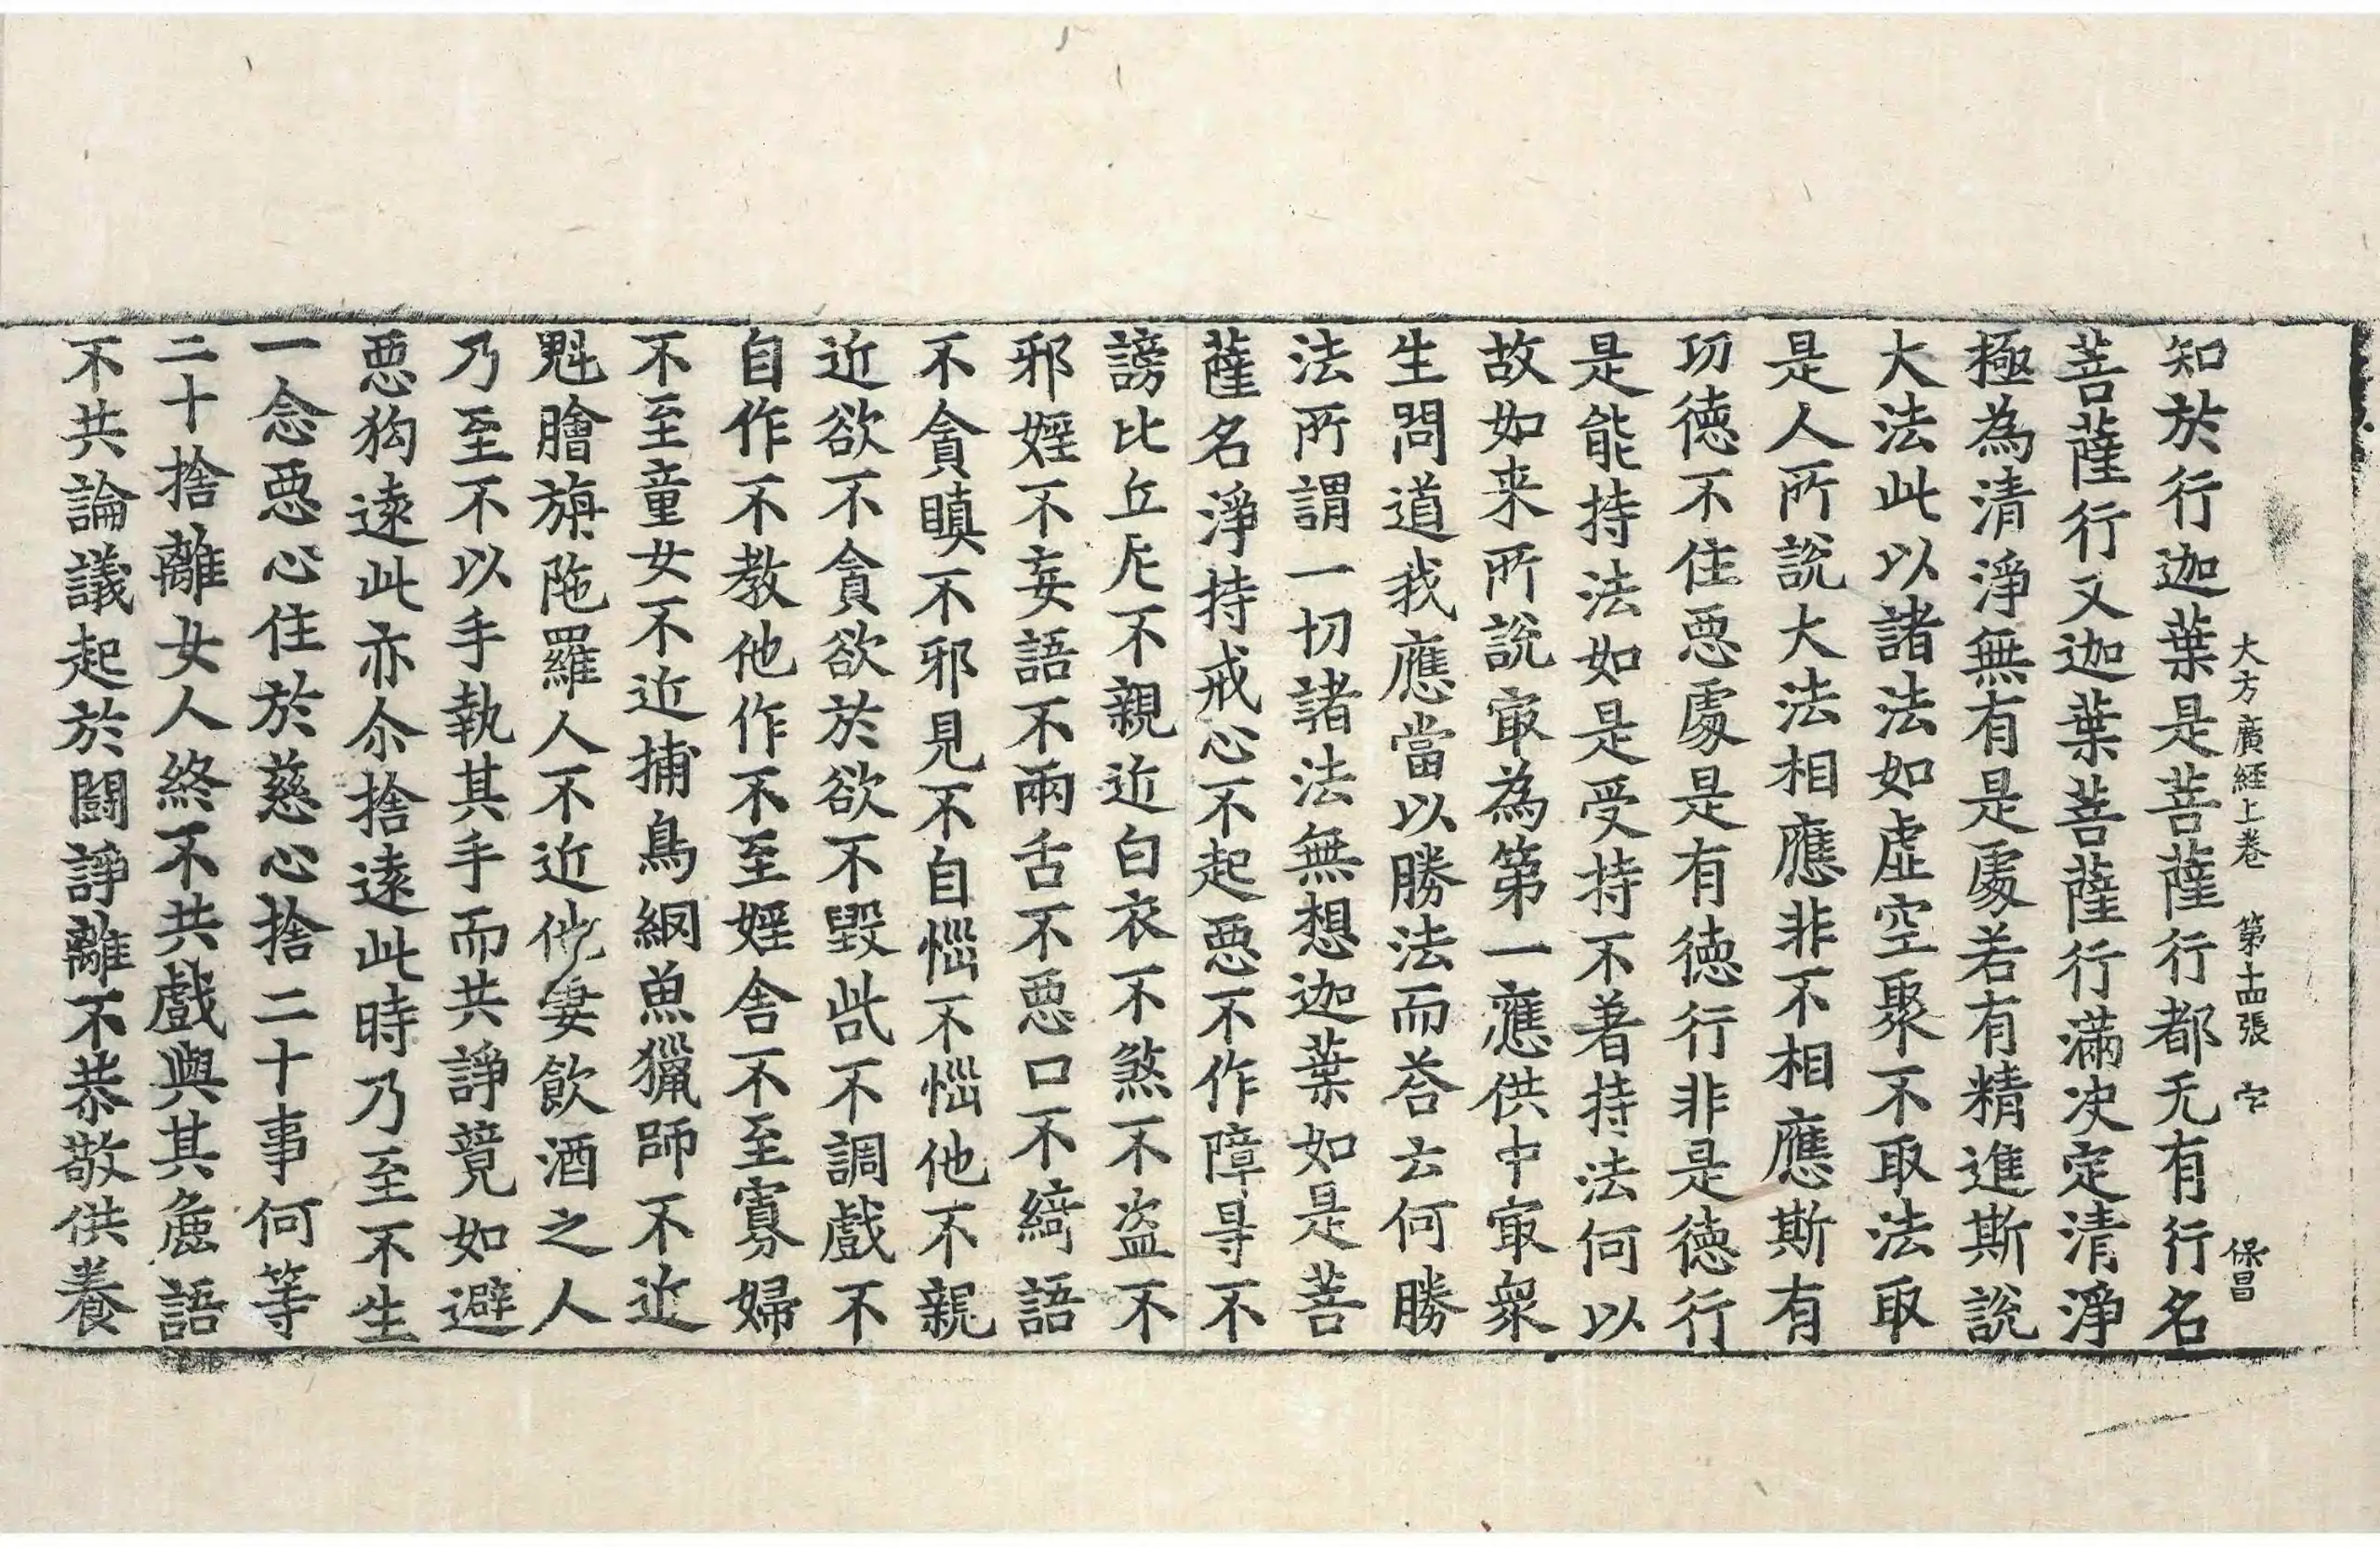 大方廣経上卷　第十四張　宀　保昌
知於行迦葉是菩薩行都无有行名
菩薩行又迦葉菩薩行滿决定清淨
極為清淨無有是處若有精進斯說
大法此以諸法如虛空聚不取法取
是人所說大法相應非不相應斯有
功德不住惡處是有德行非是德行
是能持法如是受持不著持法何以
故如来所說冣為第一應供中冣衆
生問道我應當以勝法而荅云何勝
法所謂一切諸法無想迦葉如是菩
薩名淨持戒心不起惡不作障㝵不
謗比丘尼不親近白衣不煞不盗不
邪婬不妄語不兩舌不惡口不綺語
不貪瞋不邪見不自惱不惱他不親
近欲不貪欲於欲不毀呰不調戲不
自作不教他作不至婬舍不至寡婦
不至童女不近捕鳥網魚獵師不近
魁膾旃陁羅人不近他妻飲酒之人
乃至不以手執其手而共諍競如避
惡狗遠此亦尒捨遠此時乃至不生
一念惡心住於慈心捨二十事何等
二十捨離女人終不共戲與其麁語
不共論議起於鬪諍離不恭敬供養